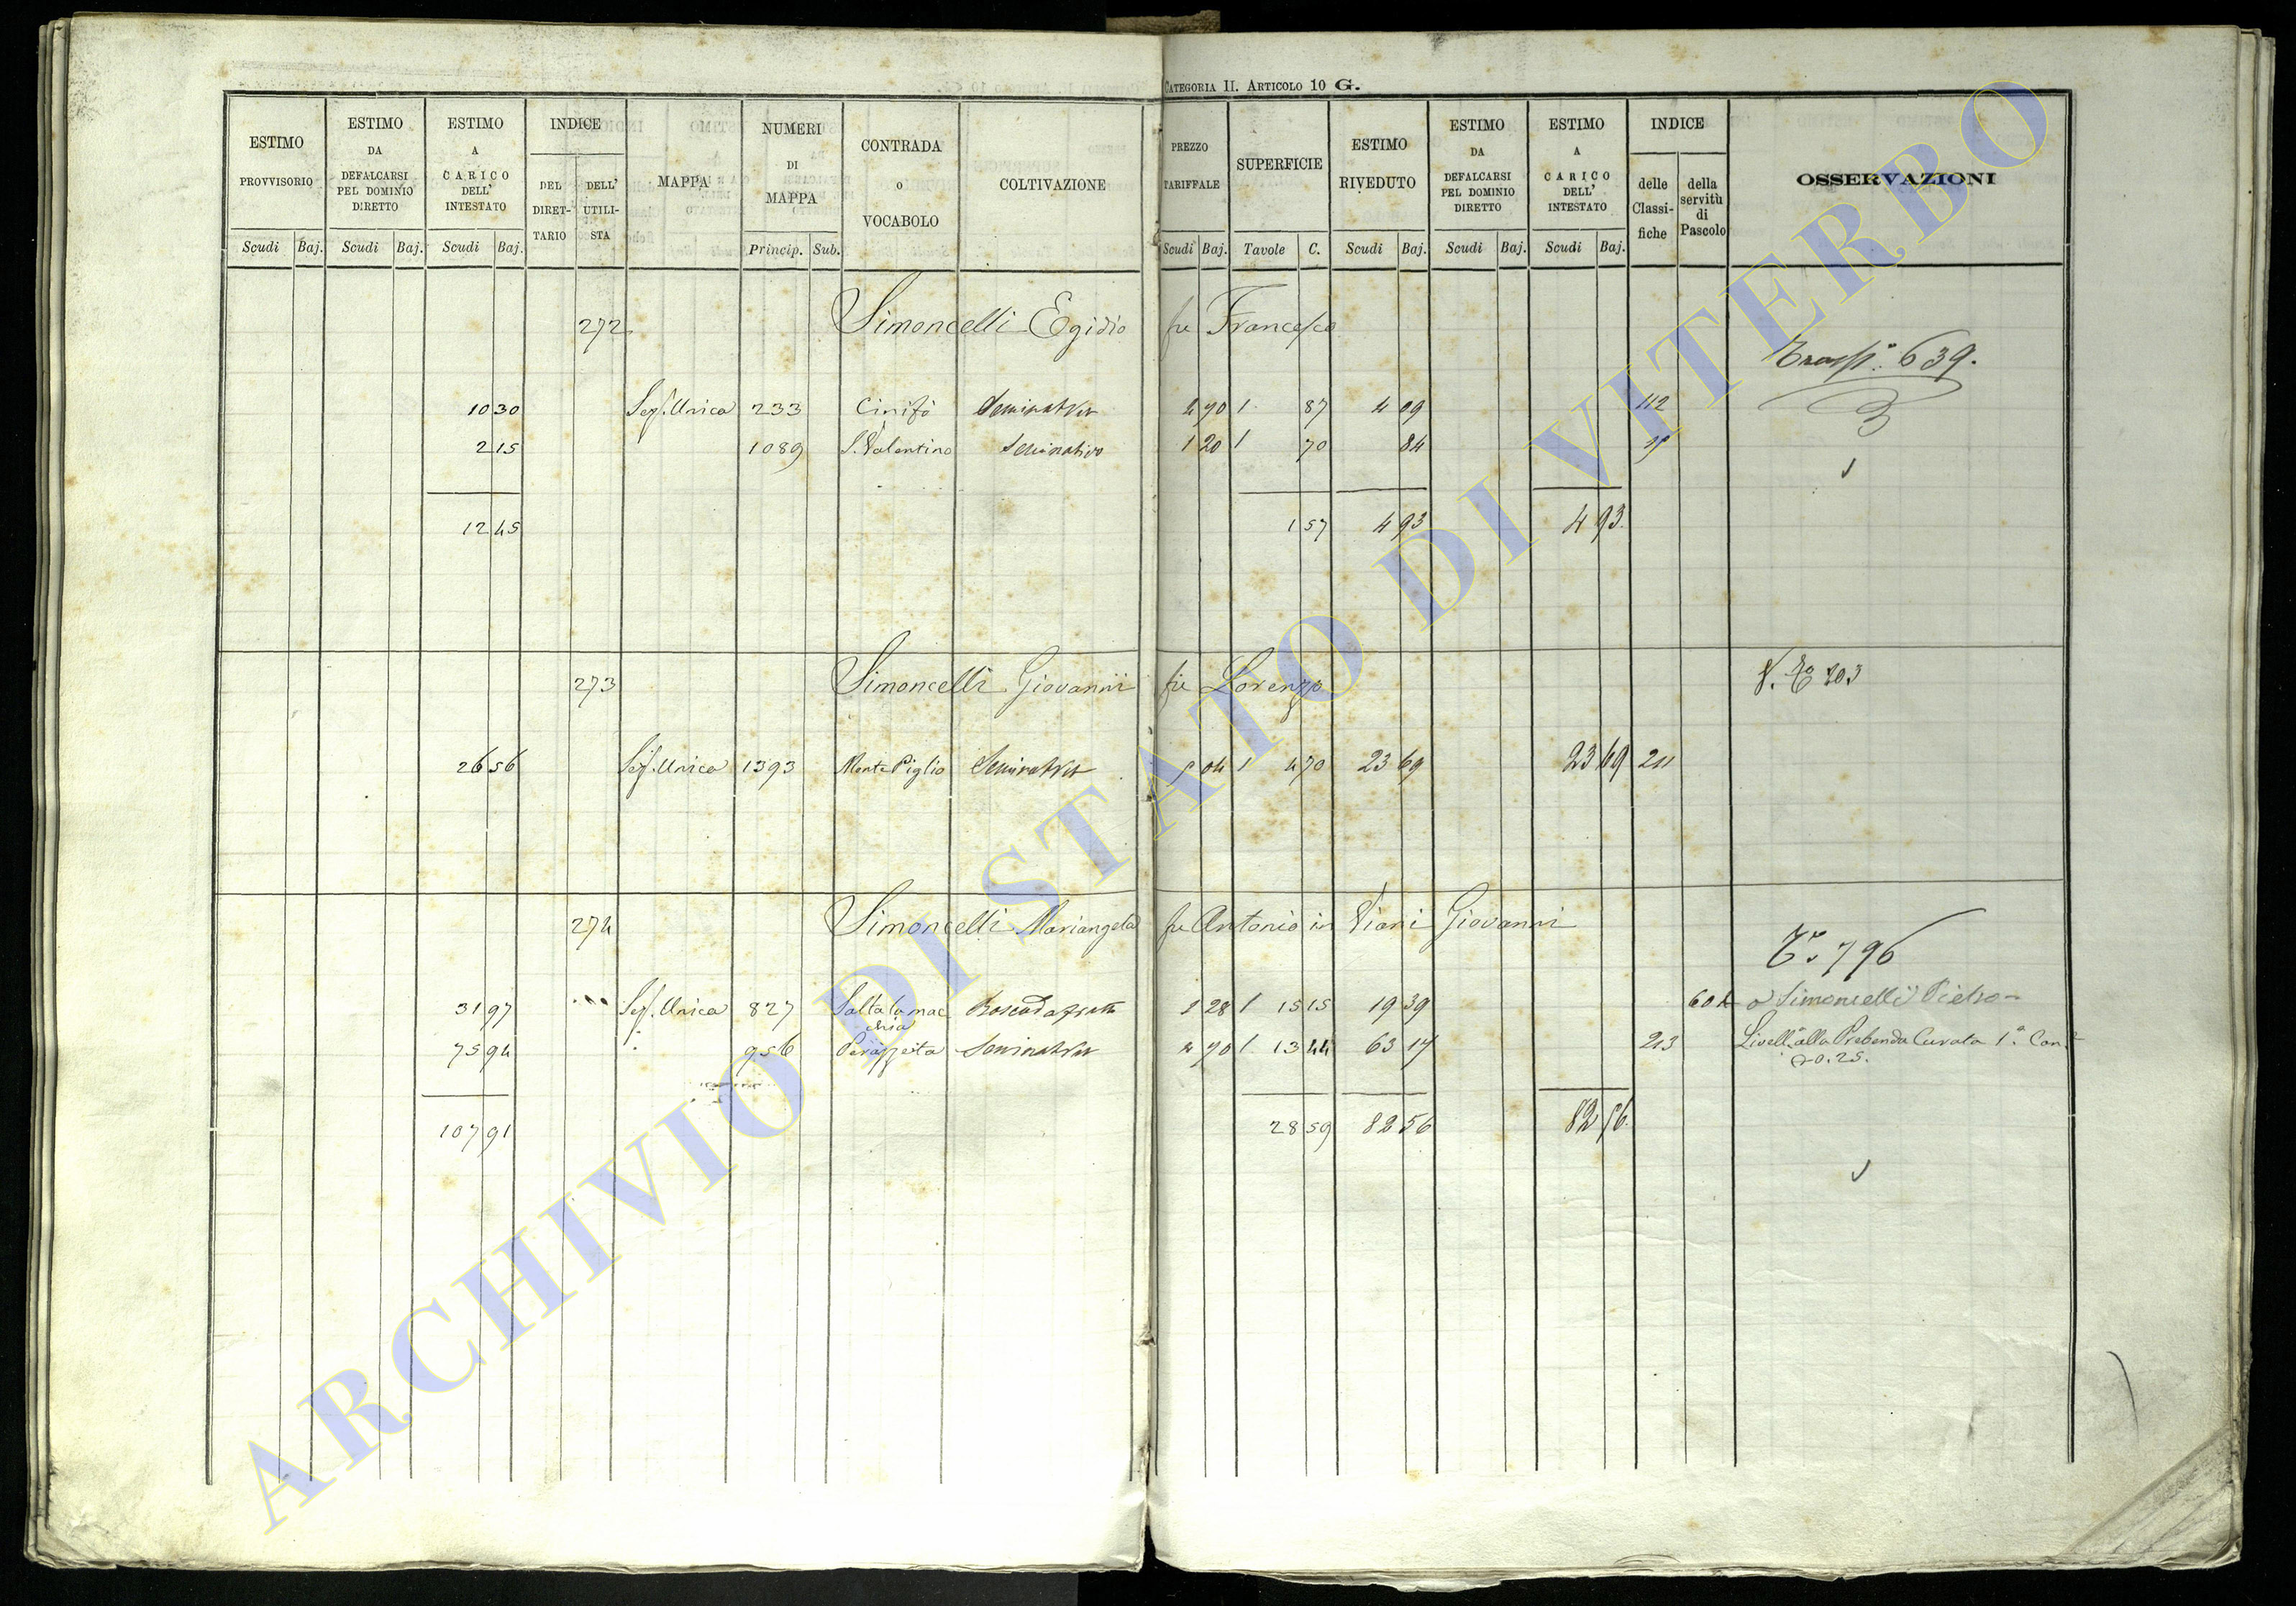 CATEGORIA II. ARTICOLO 10 G.
ESTIMO PROVVISORIO
Scudi Baj.
ESTIMO DA DEFALCARSI PEL DOMINIO DIRETTO
Scudi Baj.
ESTIMO A CARICO DELL' INTESTATO
Scudi Baj.
INDICE
DEL DIRET-TARIO
DELL' UTILI-STA
MAPPA
NUMERI DI MAPPA
Princip. Sub.
CONTRADA o VOCABOLO
COLTIVAZIONE
PREZZO TARIFFALE
Scudi Baj.
SUPERFICIE
Tavole C.
ESTIMO RIVEDUTO
Scudi Baj.
ESTIMO DA DEFALCARSI PEL DOMINIO DIRETTO
Scudi Baj.
ESTIMO A CARICO DELL' INTESTATO
Scudi Baj.
INDICE
delle Classi-fiche
della servitù di Pascolo
OSSERVAZIONI
272 Simoncelli Egidio fu Francesco
639.
10 30 Sez. Unica 233 Cinifò Seminativo 4 90 1 87 4 09 112
2 15 1089 S. Valentino Seminativo 1 20 1 70 84
12 45 1 57 4 93 4 93
273 Simoncelli Giovanni fu Lorenzo
203
26 56 Sez. Unica 1393 Monte Piglio Seminativo 5 04 1 4 70 23 69 23 69 211
274 Simoncelli Mariangela fu Antonio in Viani Giovanni
796
31 97 Sez. Unica 827 Saltalamac 1 28 1 15 15 19 39 604 a Simoncelli Pietro
chia
75 94 956 Perazzeta Seminativo 4 70 1 13 44 63 17 213 Livell. alla Prebenda Curata 1.a Can.
0.25.
107 91 28 59 82 56 82 56
ARCHIVIO DI STATO DI VITERBO